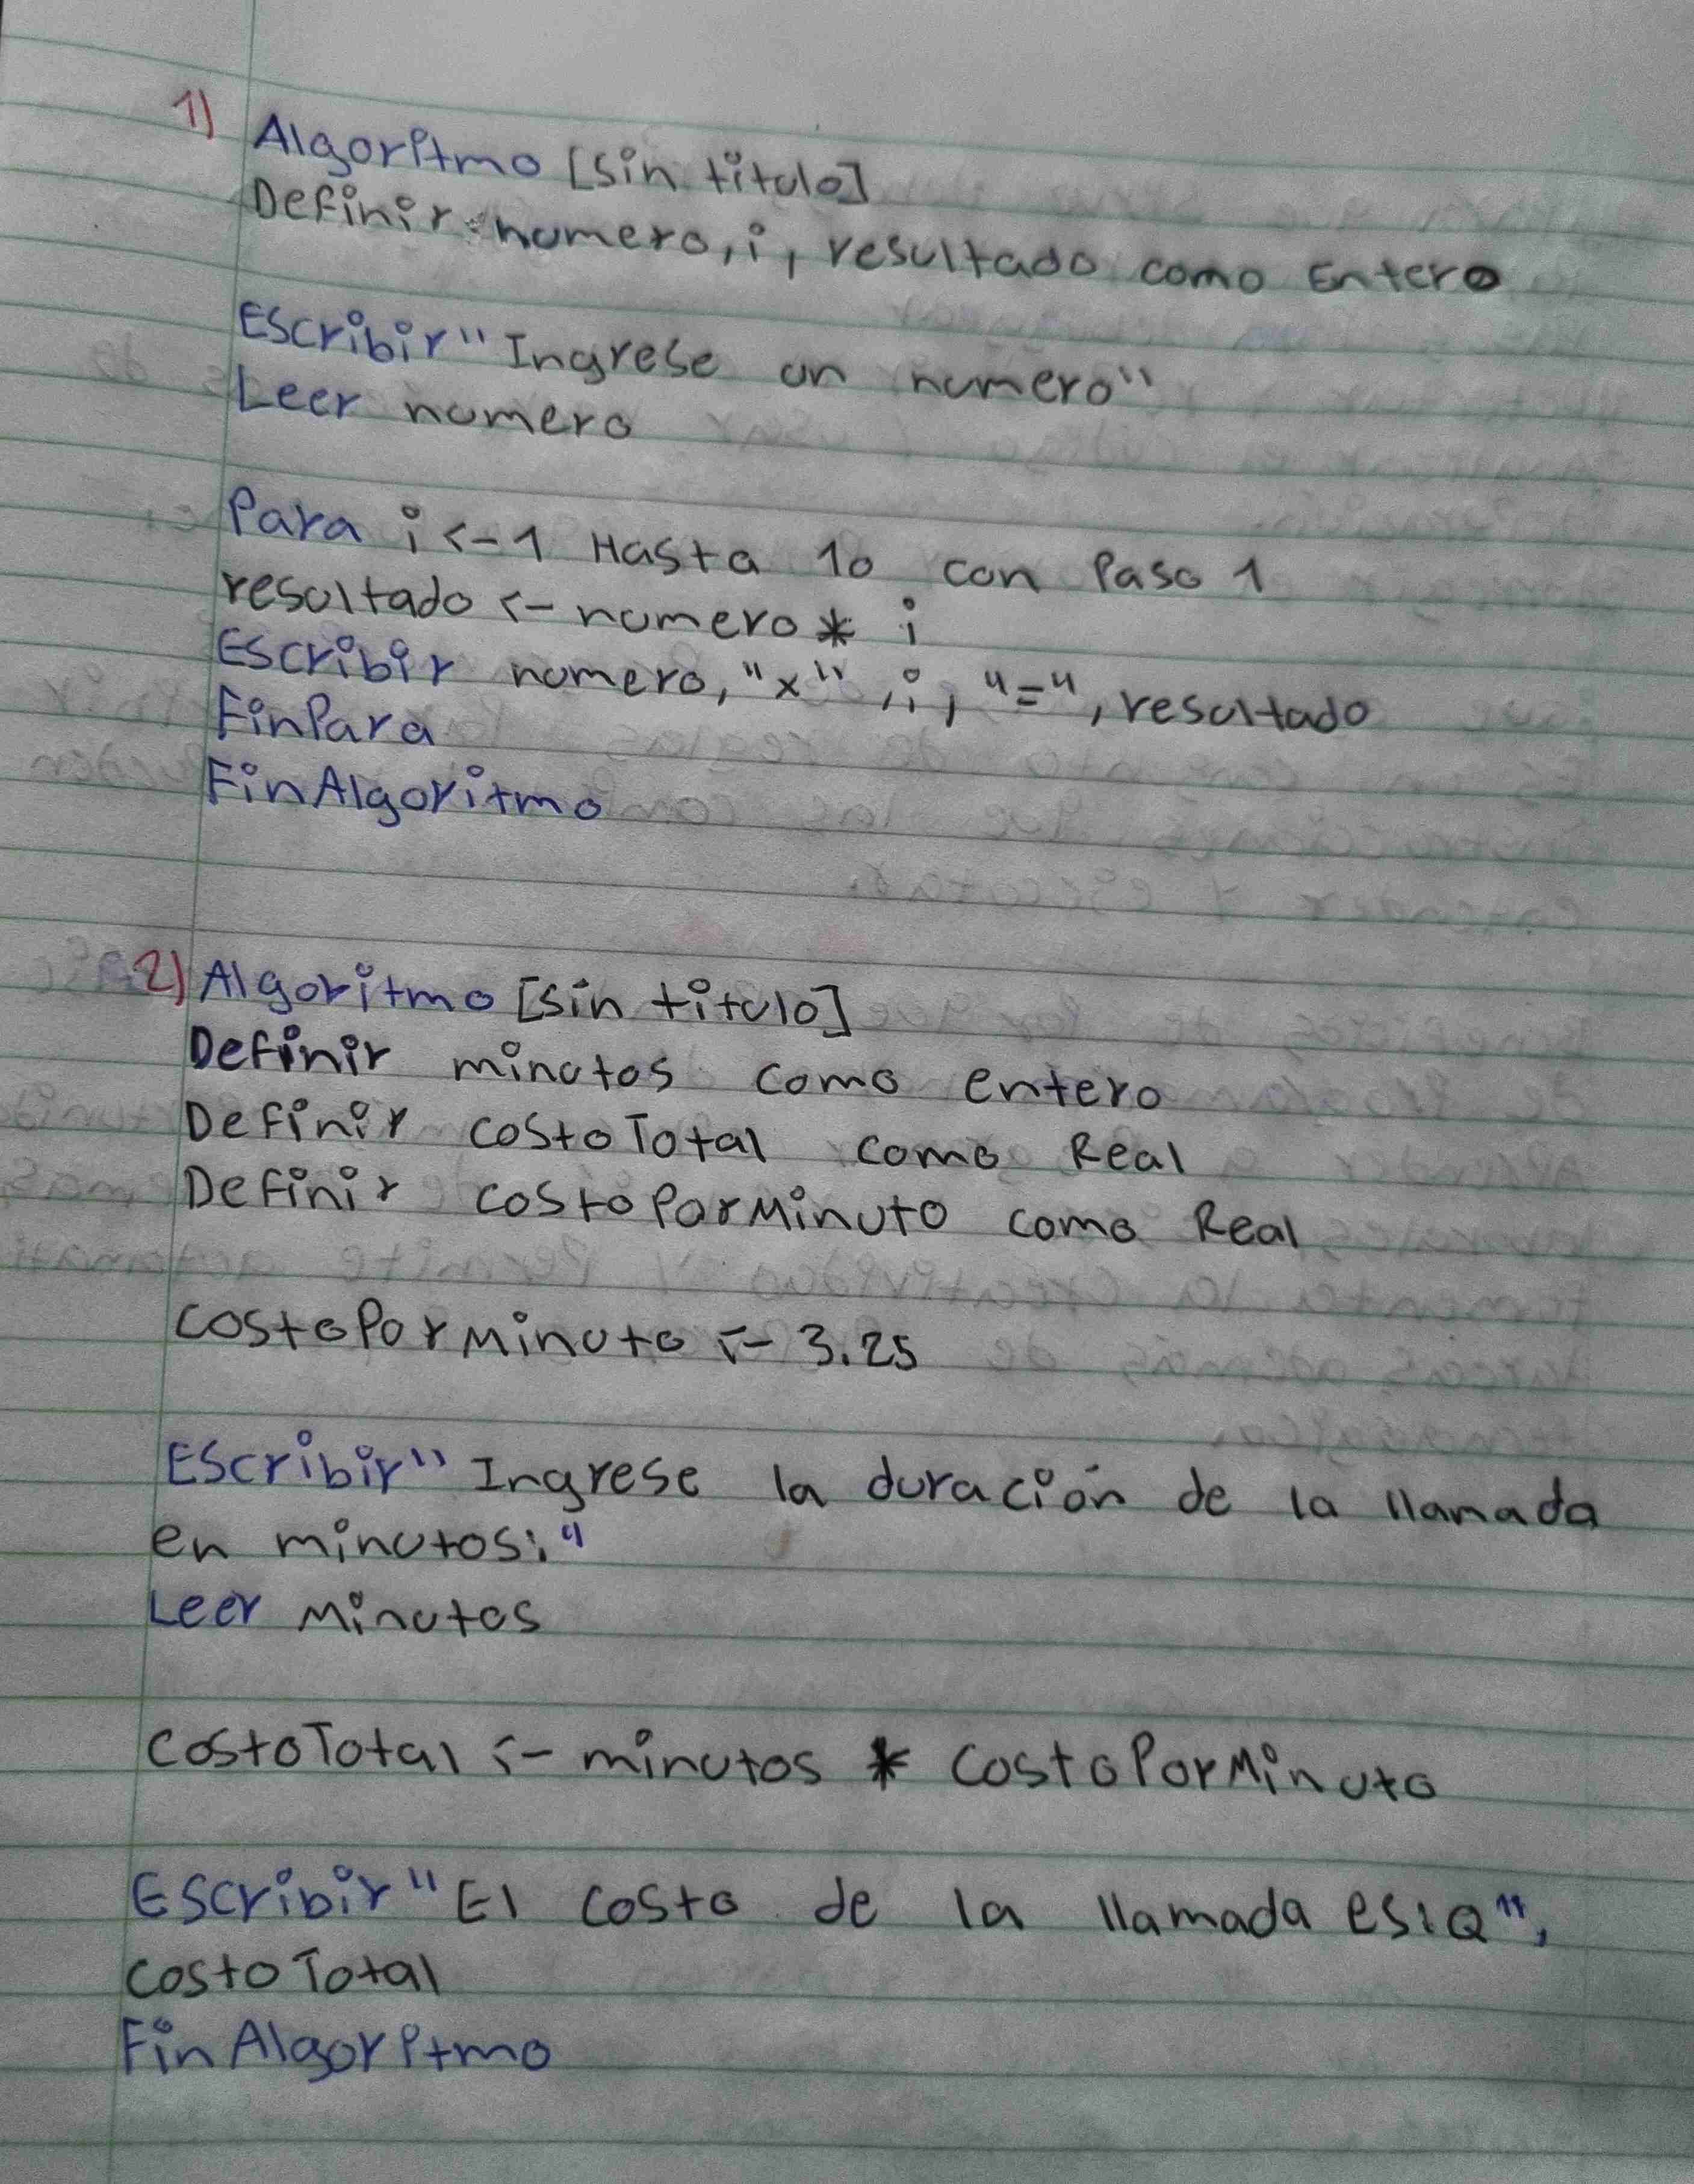 1) Algoritmo [sin titulo]
Definir numero, i, resultado como Entero
Escribir "Ingrese un numero"
Leer numero
Para i <- 1 Hasta 10 con Paso 1
resultado <- numero * i
Escribir numero, "x", i, "=", resultado
FinPara
FinAlgoritmo
2) Algoritmo [sin titulo]
Definir minutos como entero
Definir costoTotal como Real
Definir costoPorMinuto como Real
costoPorMinuto <- 3.25
Escribir "Ingrese la duración de la llamada
en minutos:"
Leer Minutos
costoTotal <- minutos * costoPorMinuto
Escribir "El costo de la llamada es:Q",
costoTotal
FinAlgoritmo